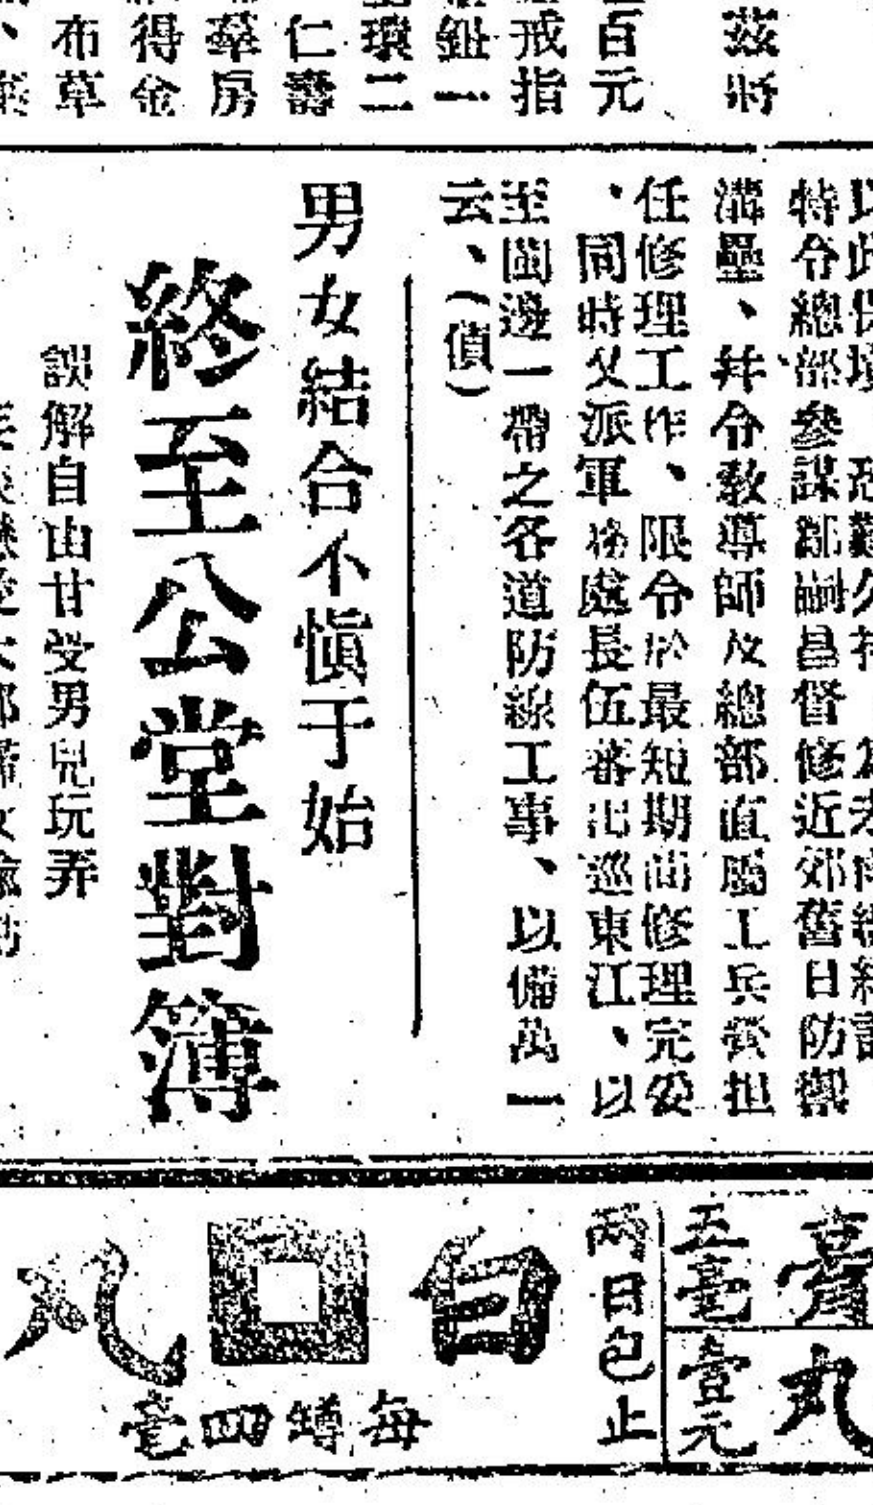 茲將
百元
戒指
鈕一
瓊二
仁壽
房
得金
布草
特令總部參謀鄒嗣昌督修近郊舊日防禦
溝壘、幷令敎導師及總部直屬工兵營担
任修理工作、限令於最短期間修理完妥
、同時又派軍務處長伍蕃出巡東江、以
至閩邊一帶之各道防線工事、以備萬一
云、(偵)
男女結合不愼于始
終至公堂對簿
誤解自由甘受男兒玩弄
膏
丸
五毫
壹元
兩日包止
白口丸
每罇四毫